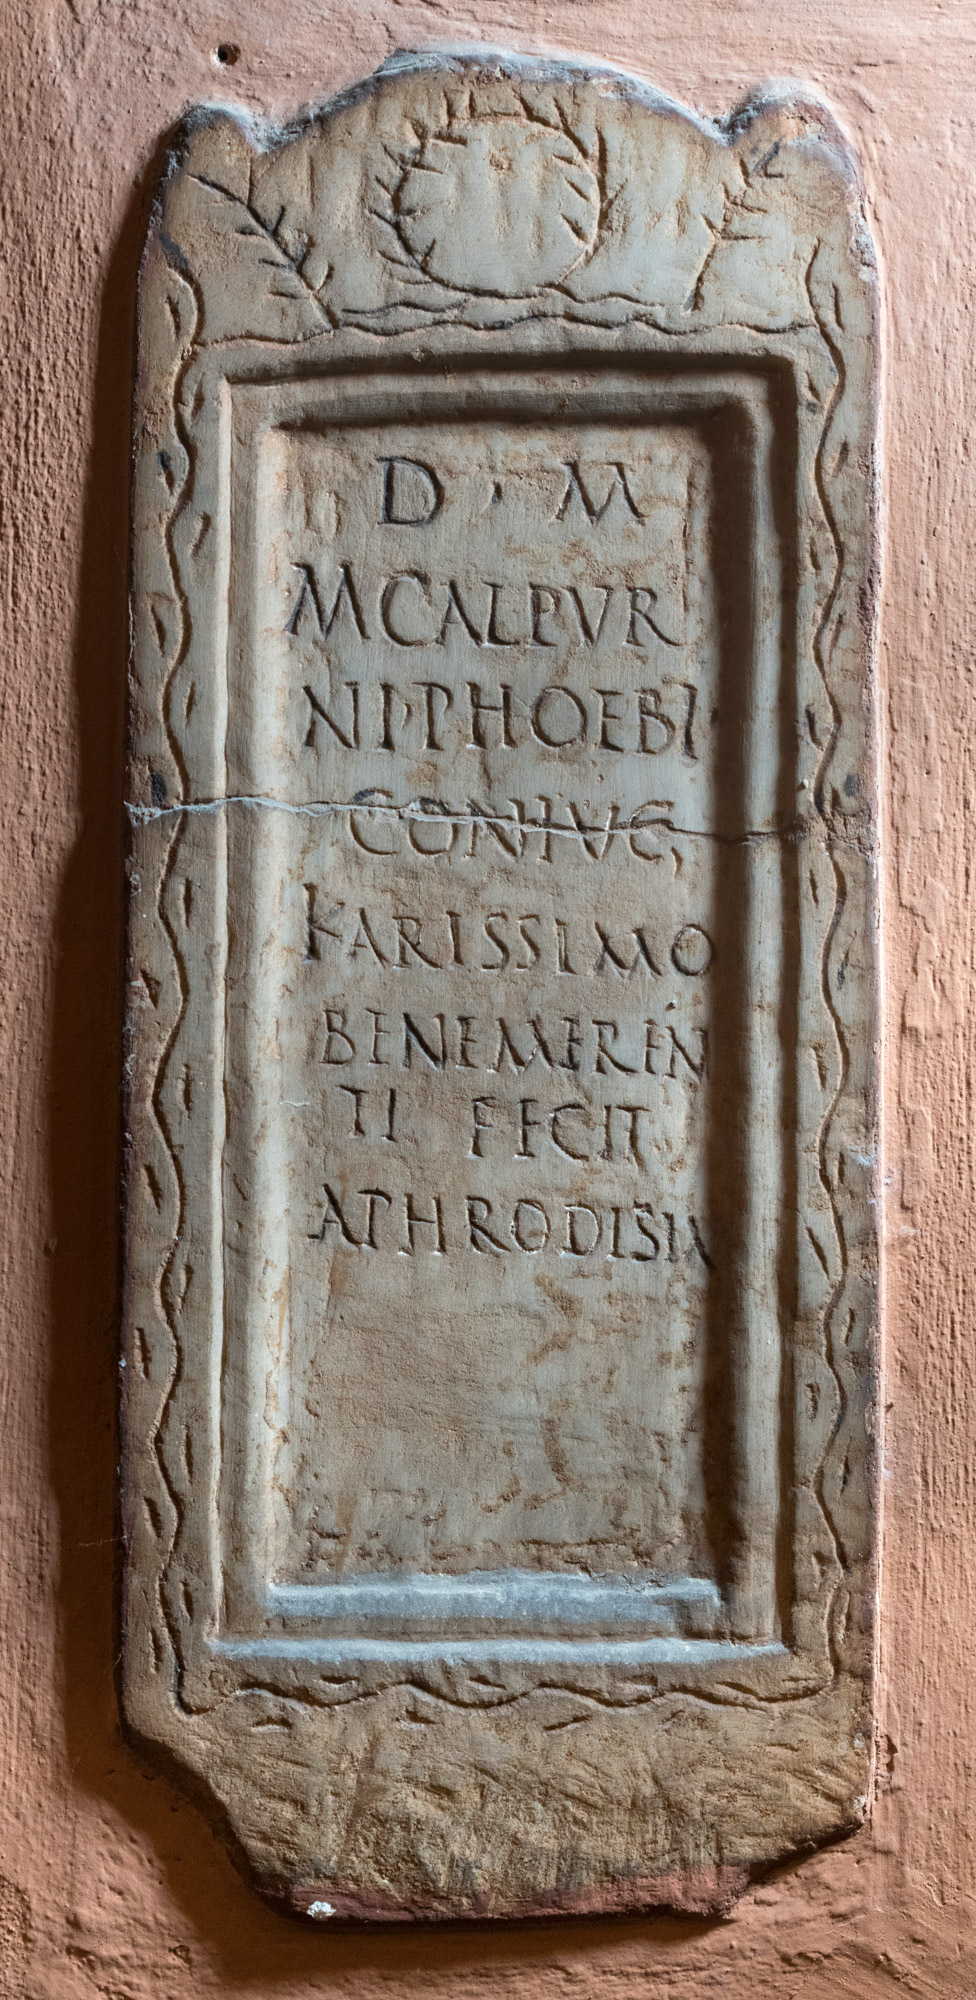 D · M
MCALPVR
NIPHOEBI
CONIVG
KARISSIMO
BENEMEREN
TI FECIT
APHRODISIA